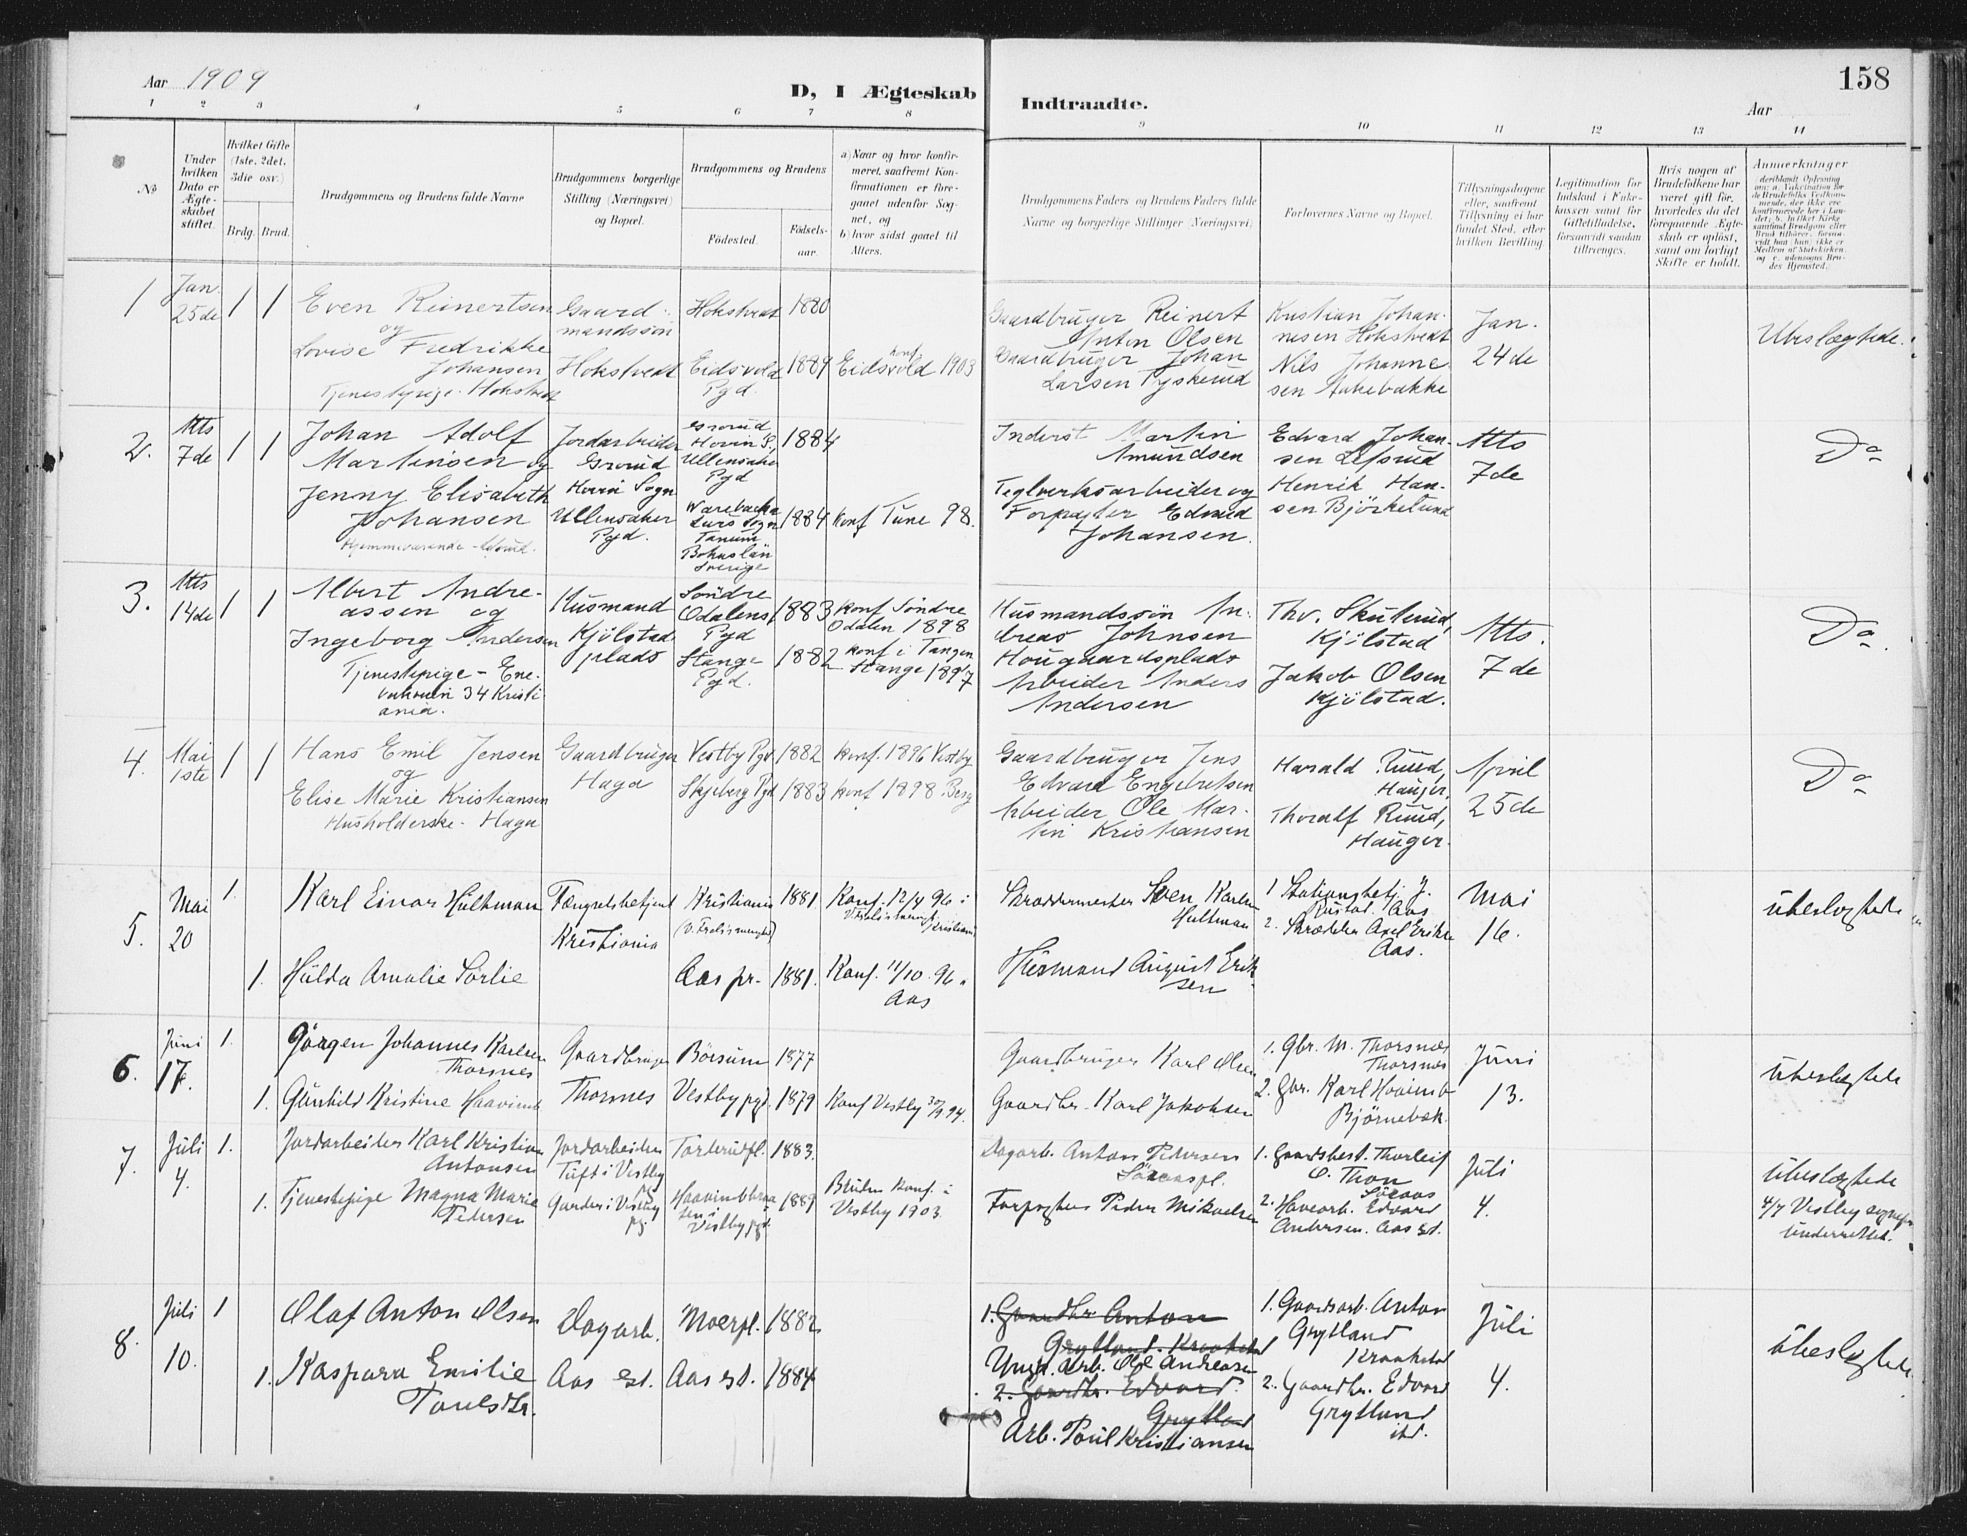 Aar 1909
D, I Ægteskab
Indtraadte.
158
Aar
1 2 3 4 5 6 7 8 9 10 11 12 13 14
No
Under
hvilken
Dato er
Ægte-
skabet
stiftet.
Hvilket Gifte
(1ste, 2det,
3die osv.)
Brdg. Brud.
Brudgommens og Brudens fulde Navne
Brudgommens borgerlige
Stilling (Næringsvei)
og Bopæl.
Brudgommens og Brudens
Fødested.
Fødsels-
aar.
a) Naar og hvor konfir-
meret, saafremt Kon-
firmationen er fore-
gaaet udenfor Sog-
net, og
b) hvor sidst gaaet til
Alters.
Brudgommens Faders og Brudens Faders fulde
Navne og borgerlige Stillinger (Næringsvei)
Forlovernes Navne og Bopæl.
Tillysningsdagene
eller, saafremt
Tillysning ei har
fundet Sted, efter
hvilken Bevilling.
Legitimation for
Indskud i Enke-
kassen samt for
Giftetilladelse,
forsaavidt saadan
tiltrænges.
Hvis nogen af
Brudefolkene har
været gift før,
hvorledes da det
foregaaende Ægte-
skab er opløst,
samt om lovligt
Skifte er holdt.
Anmerkninger
1
Jan.
25de
1 1
Even Reinertsen
og
Lovise Fredrikke
Johansen
Tjenestepige. Hokstvedt
Gaard-
mandssøn
Hokstvedt
Hokstvedt
Eidsvold
Pgd.
1880
1889
konf
Eidsvold 1903
Gaardbruger Reinert
Anton Olsen
Gaardbruger Johan
Larsen Tyskerud
Kristian Johan-
nesen Hokstvedt
Nils Johanne
sen Aakebakke
Jan.
24de
Ubeslægtede.
2.
Mts
7de
1 1
Johan Adolf
Martinsen og
Jenny Elisabeth
Johansen
Jordarbeider
Grorud
Hovin Sogn
Ullensaker
Pgd.
Grorud
Hovin S.,
Ullensaker
Pgd
Lurs Sogn
Tanum
Bohuslän
Sverige
1884
1884
konf Tune 98.
Inderst Martin
Amundsen
Teglverksarbeider og
Forpagter Edvard
Johansen.
Edvard Johan-
sen Lefsrud
Henrik Han-
sen Björkelund
Mts
7de
Do
3.
Mts
14de
1 1
Albert Andre-
assen og
Ingeborg Andersen
Tjenestepige - Ene-
bakveien 34 Kristi-
ania.
Husmand
Kjölstad
plads
Söndre
Odalens
Pgd
Stange
Pgd.
1883
1882
konf Söndre
Odalen 1898
konf i Tangen
Stange 1897
Husmandssön An-
dreas Johnsen
Hougaardsplads
Arbeider Anders
Andersen
Thv. Skuterud,
Kjölstad
Jakob Olsen
Kjölstad.
Mts.
7de
Do.
4.
Mai
1ste
1 1
Hans Emil Jensen
og
Elise Marie Kristiansen
Husholderske. Haga
Gaardbruger
Haga
Vestby Pgd
Skjeberg Pgd
1882
1883
konf. 1896 Vestby
konf 1898 Berg
Gaardbruger Jens
Edvard Engebretsen
Arbeider Ole Mar-
tin Kristiansen
Harald Ruud,
Hauger.
Thoralf Ruud,
Hauger.
April
25de
Do
5.
Mai
20
1.
1.
Karl Einar Hultman
Hulda Amalie Sörlie
Fængselsbetjent
Kristiania
Kristiania
(V. Frelsersmenighed)
Aas pr.
1881
1881.
Konf. 12/4 96 i
Konf. 11/10. 96 i
Aas
Skræddermester Sven Karlsen
Hultman
Husmand August Erik-
sen
1 Stationsbetj. J.
Rustad. Aas
2. Skrædder Axel Eriksen
Aas.
Mai
16.
Ubeslægtede
6.
Juni
17.
1.
1.
Jörgen Johannes Karlsen
Thorsnes
Gunhild Kristine Haavimb
Gaardbruger
Thorsnes
Börsum
Vestby pgd.
1877
1879
Konf Vestby 30/9 94.
Gaardbruger Karl Olsen
Gaardbr. Karl Jakobsen
1. Gbr. M. Thorsnes
Thorsnes
2. Gbr. Karl Haavimb
Björnebæk.
Juni
13.
Ubeslægtede
7.
Juli
4.
1.
1.
Jordarbeider Karl Kristian
Antonsen
Tjenestepige Magna Marie
Pedersen
Jordarbeider
Tuft i Vestby
Gunder i Vestby
pg
Torderudpl.
Vestby pgd.
1883.
1889
Bruden konf. i
Vestby 1903.
Dagarb. Anton Pedersen
Söraaspl.
Forpagter Peder Mikaelsen
1. Gaardsbest. Thorleif
O. Thon
Söraas
2. Havearb. Edvard
Andersen. Aas st.
Juli
4.
Ubeslægtede
4/7 Vestby sognepr
underrettet.
8.
Juli
10.
1
1.
Olaf Anton Olsen
Kaspara Emilie
Paulsdtr.
Dagarb.
Aas st.
Moerpl.
Aas st.
1882
1884
1. Gaardbr Anton
Grytland. Kraakstad
Ungk. arb. Ole Andreasen
2. Gaardbr. Edvard
Grytland
Arb. Paul Kristiansen
1. Gaardsarb. Anton
Grytland
Kraakstad
2. Gaardbr. Edvard
Grytland
ibd.
Juli
4.
Ubeslægtede